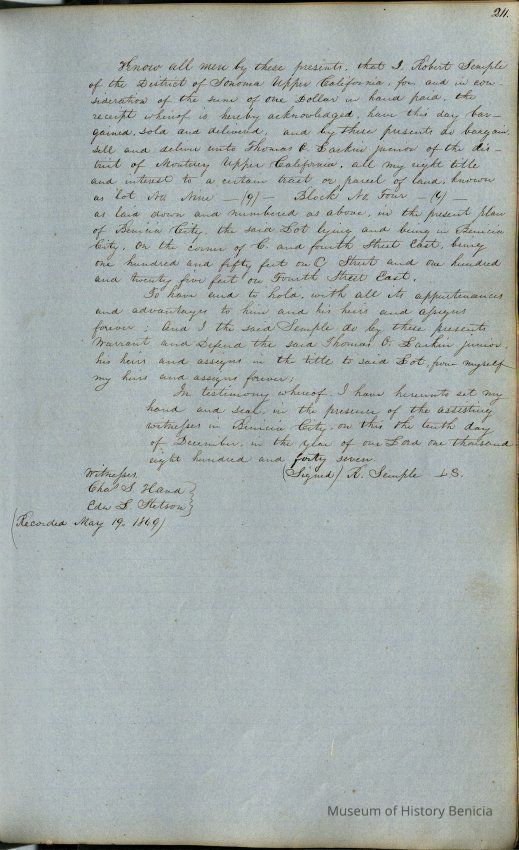 24.
Know all men by these presents, that I Robert Semple
of the District of Sonoma Upper California, for and in con-
sideration of the sum of one Dollar in hand paid, the
receipt whereof is hereby acknowledged, have this day bar-
gained, sold and delivered, and by these presents do bargain,
sell and deliver unto Thomas O. Larkin junior of the dis-
trict of Monterey Upper California, all my right title
and interest to a certain tract or parcel of land, known
as Lot No Nine — (9) — Block No Four — (4) —
as laid down and numbered as above, in the present plan
of Benicia City, the said Lot lying and being in Benicia
City, on the corner of C. and fourth Street East, being
one hundred and fifty feet on C Street and one hundred
and twenty five feet on Fourth Street East.
To have and to hold, with all its appurtenances
and advantages to him and his heirs and assigns
forever; And I the said Semple do by these presents
Warrant and Defend the said Thomas O. Larkin junior,
his heirs and assigns in the title to said Lot, from myself
my heirs and assigns forever;
In testimony whereof, I have hereunto set my
hand and seal, in the presence of the attesting
witnesses in Benicia City, on this the tenth day
of December, in the year of our Lord one thousand
eight hundred and forty seven.
Witnesses, (Signed) R. Semple LS.
Chas S. Hand
Edw L. Stetson
(Recorded May 19. 1849)
Museum of History Benicia